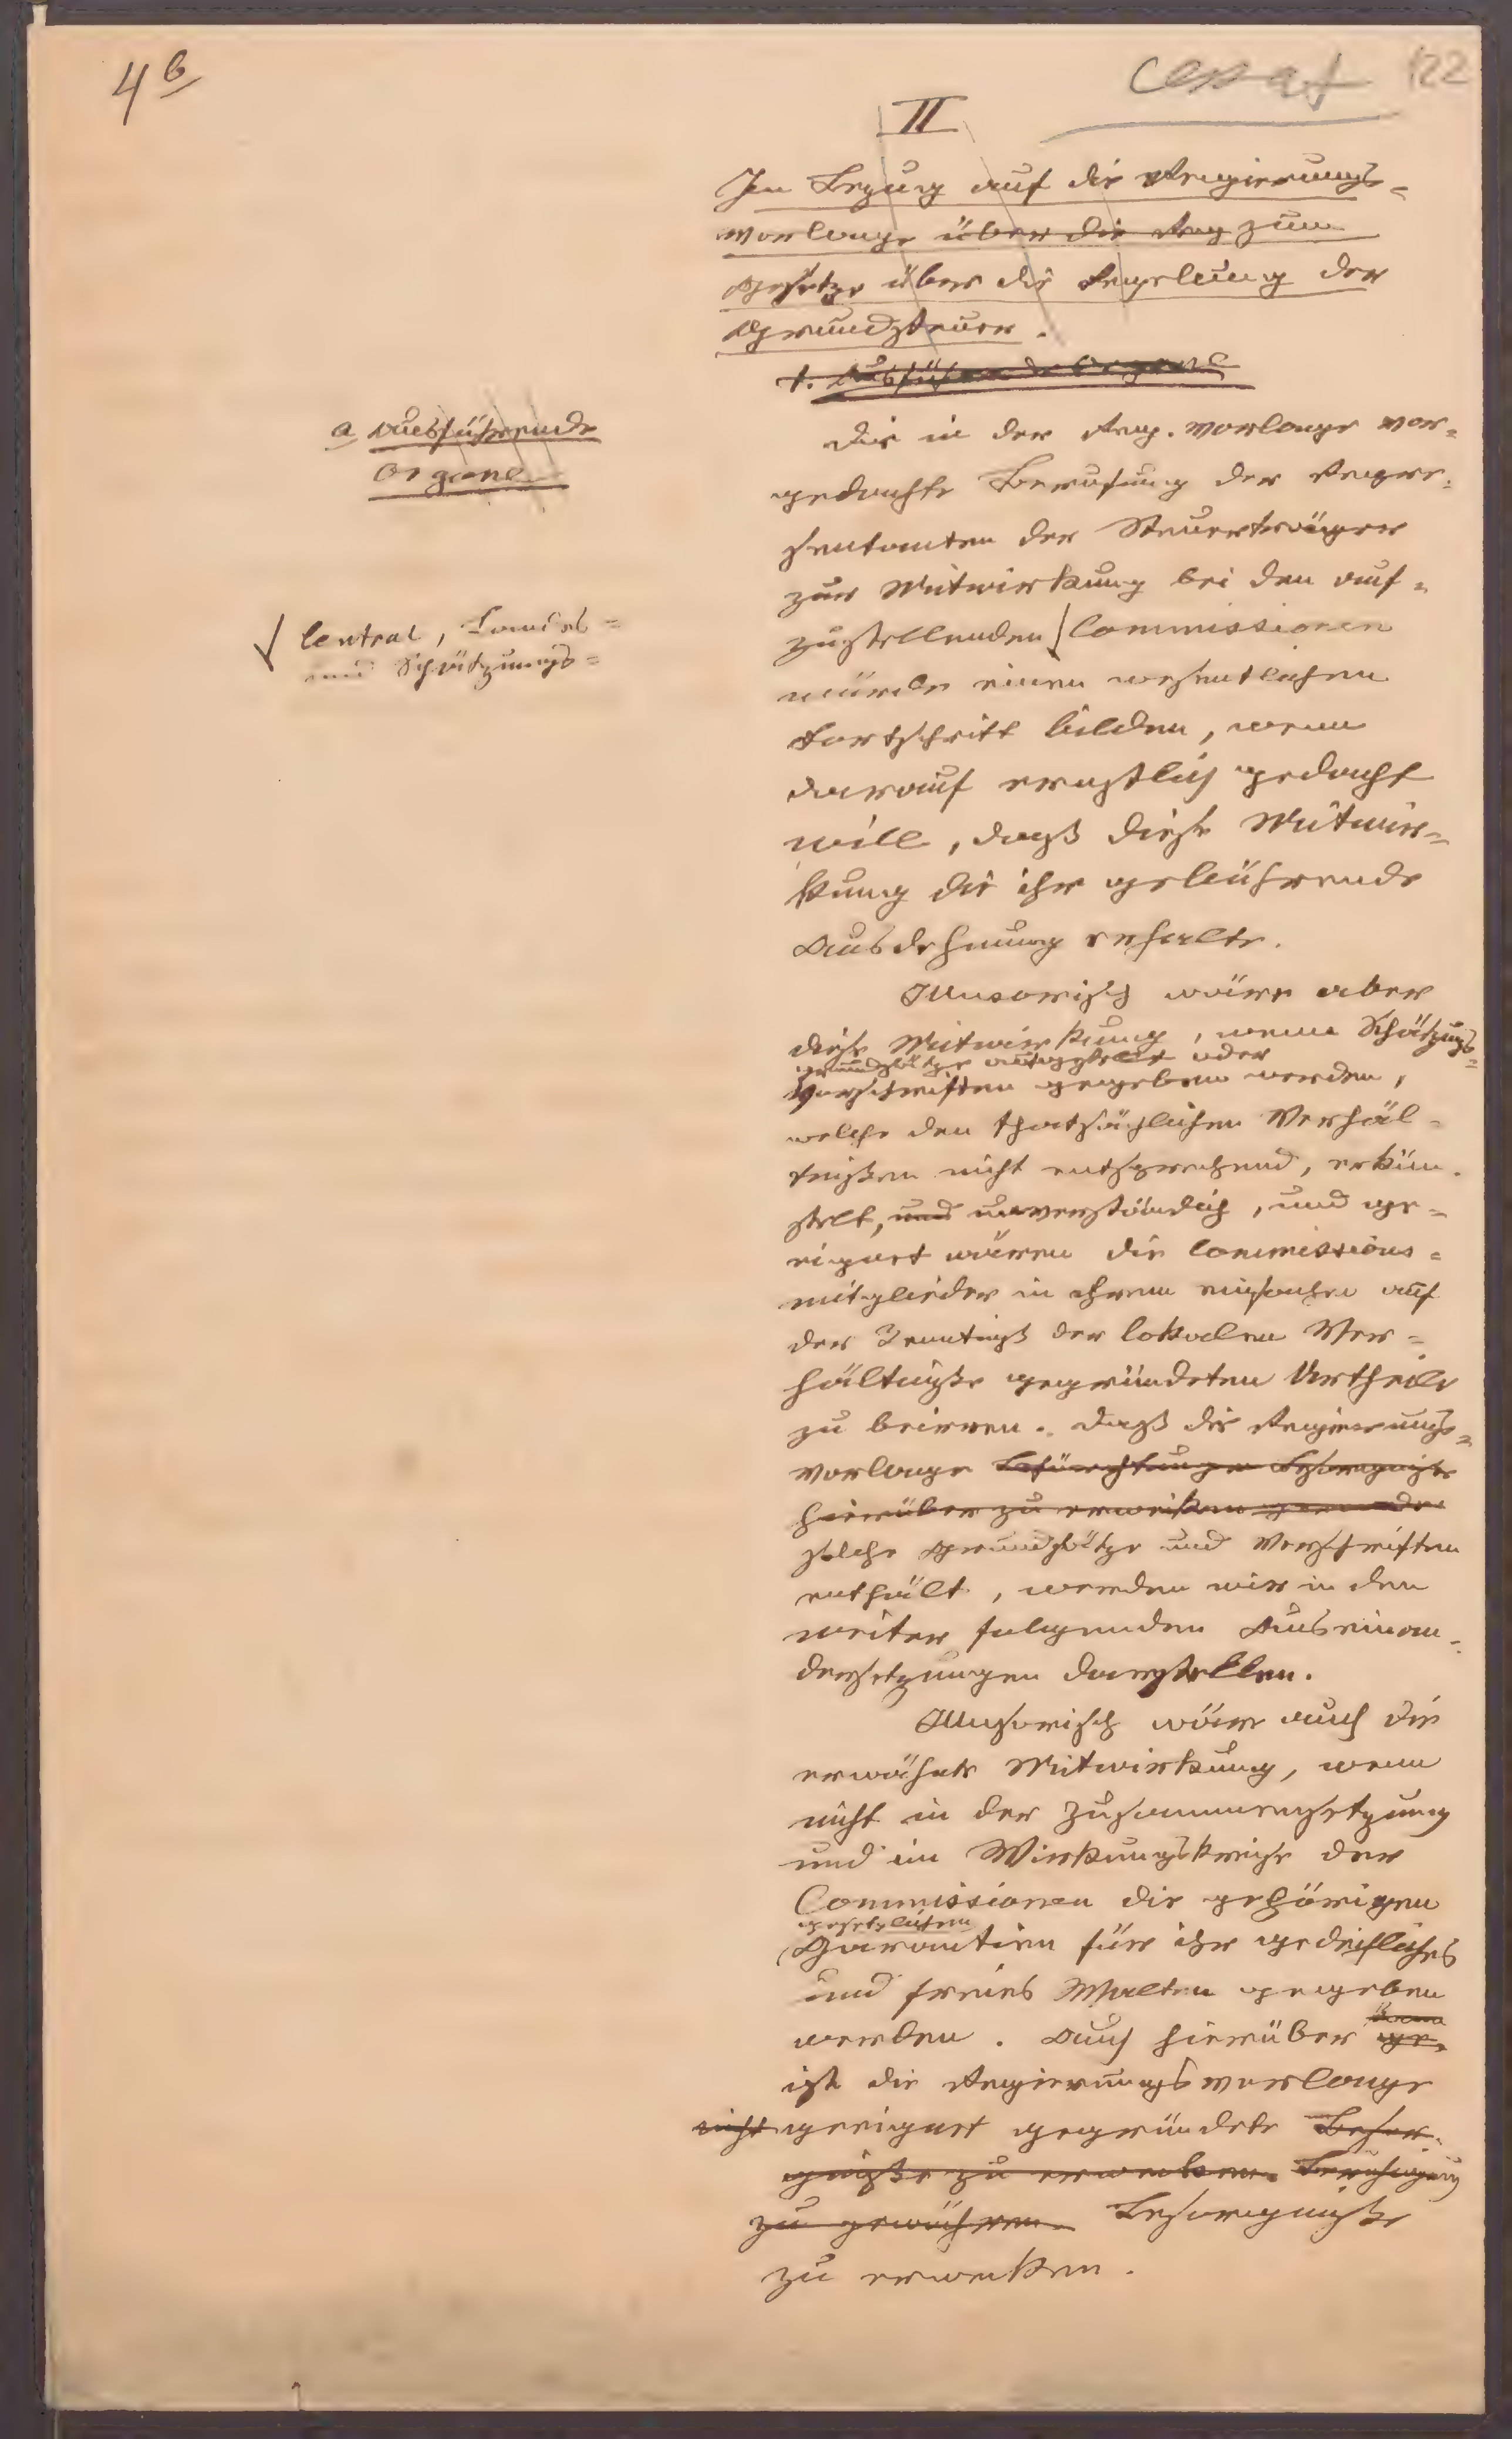 4b
cessat 122
II
In Bezug auf die Regierungs=
vorlage über die Reg zum
Gesetze über die Regelung der
Grundsteuer.
1. Ausführende Organe
a Ausführende
Organe
Die in der Reg. Vorlage vor=
gedachte Berufung der Reprä=
sentanten der Steuerträger
zur Mitwirkung bei den auf=
zustellenden / Commissionen
√ Central, Landes=
und Schätzungs=
würde einen wesentlichen
Fortschritt bilden, wenn
darauf ernstlich gedacht
will, daß diese Mitwir=
kung die ihr gebührende
Ausdehnung erhalte.
Illusorisch wäre aber
diese Mitwirkung, wenn Schätzungs=
grundsätze aufgestellt oder
Vorschriften gegeben werden,
welche den thatsächlichen Verhäl=
tnißen nicht entsprechend, erkün=
stelt, und unverständlich, und ge=
eignet wären die Commissions=
mitglieder in ihrem einfachen auf
der Kenntniß der lokalen Ver=
hältniße gegründeten Urtheile
zu beirren. Daß die Regierungs=
vorlage Befürchtungen Besorgniße
hierüber zu erwecken gerade
solche Grundsätze und Vorschriften
enthält, werden wir in den
weiter folgenden Auseinan=
dersetzungen darstellen.
Illusorisch wäre auch die
erwähnte Mitwirkung, wenn
nicht in der Zusammensetzung
und im Wirkungskreise der
Commissionen die gehörigen
gesetzlichen
Garantien für ihr gedeihliches
und freies Walten gegeben
werden. Auch hierüber ge=
ist die Regierungsvorlage
nicht geeignet gegründete Besor=
gniße zu erwecken. Beruhigung
zu gewähren Besorgniße
zu erwecken.